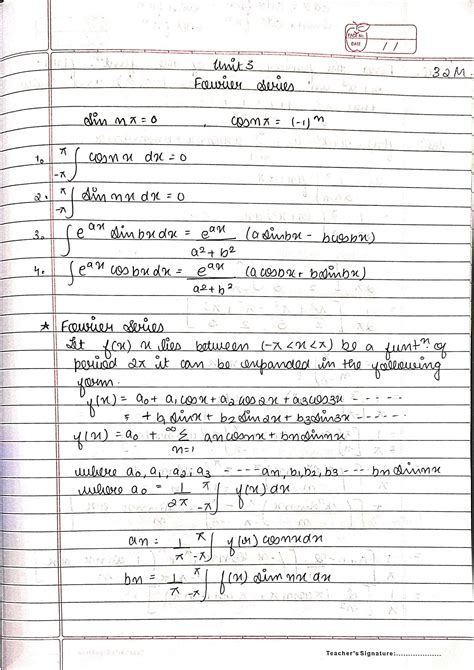 PAGE No.
DATE / /
Unit 3
32M
Fourier Series
Sin nπ = 0 , cosnπ = (-1)^n
1. π∫-π cosnx dx = 0
2. π∫-π Sin nx dx = 0
3. ∫e^ax sinbx dx = e^ax/(a²+b²) (a sinbx - b cosbx)
4. ∫e^ax cosbx dx = e^ax/(a²+b²) (a cosbx + b sinbx)
* Fourier Series
Let f(x) x lies between (-π<x<π) be a funtⁿ of
period 2π it can be expanded in the following
form.
f(x) = a0 + a1cosx + a2cos2x + a3cos3x -----
+ b1sinx + b2sin2x + b3sin3x -----
f(x) = a0 + ∞Σn=1 an cosnx + bn sinnx
where a0, a1, a2, a3 ---- an, b1, b2, b3 --- bn sinnx
where a0 = 1/2π π∫-π f(x) dx
an = 1/π π∫-π f(x) cosnx dx
bn = 1/π π∫-π f(x) sin nx dx
Teacher's Signature:..................